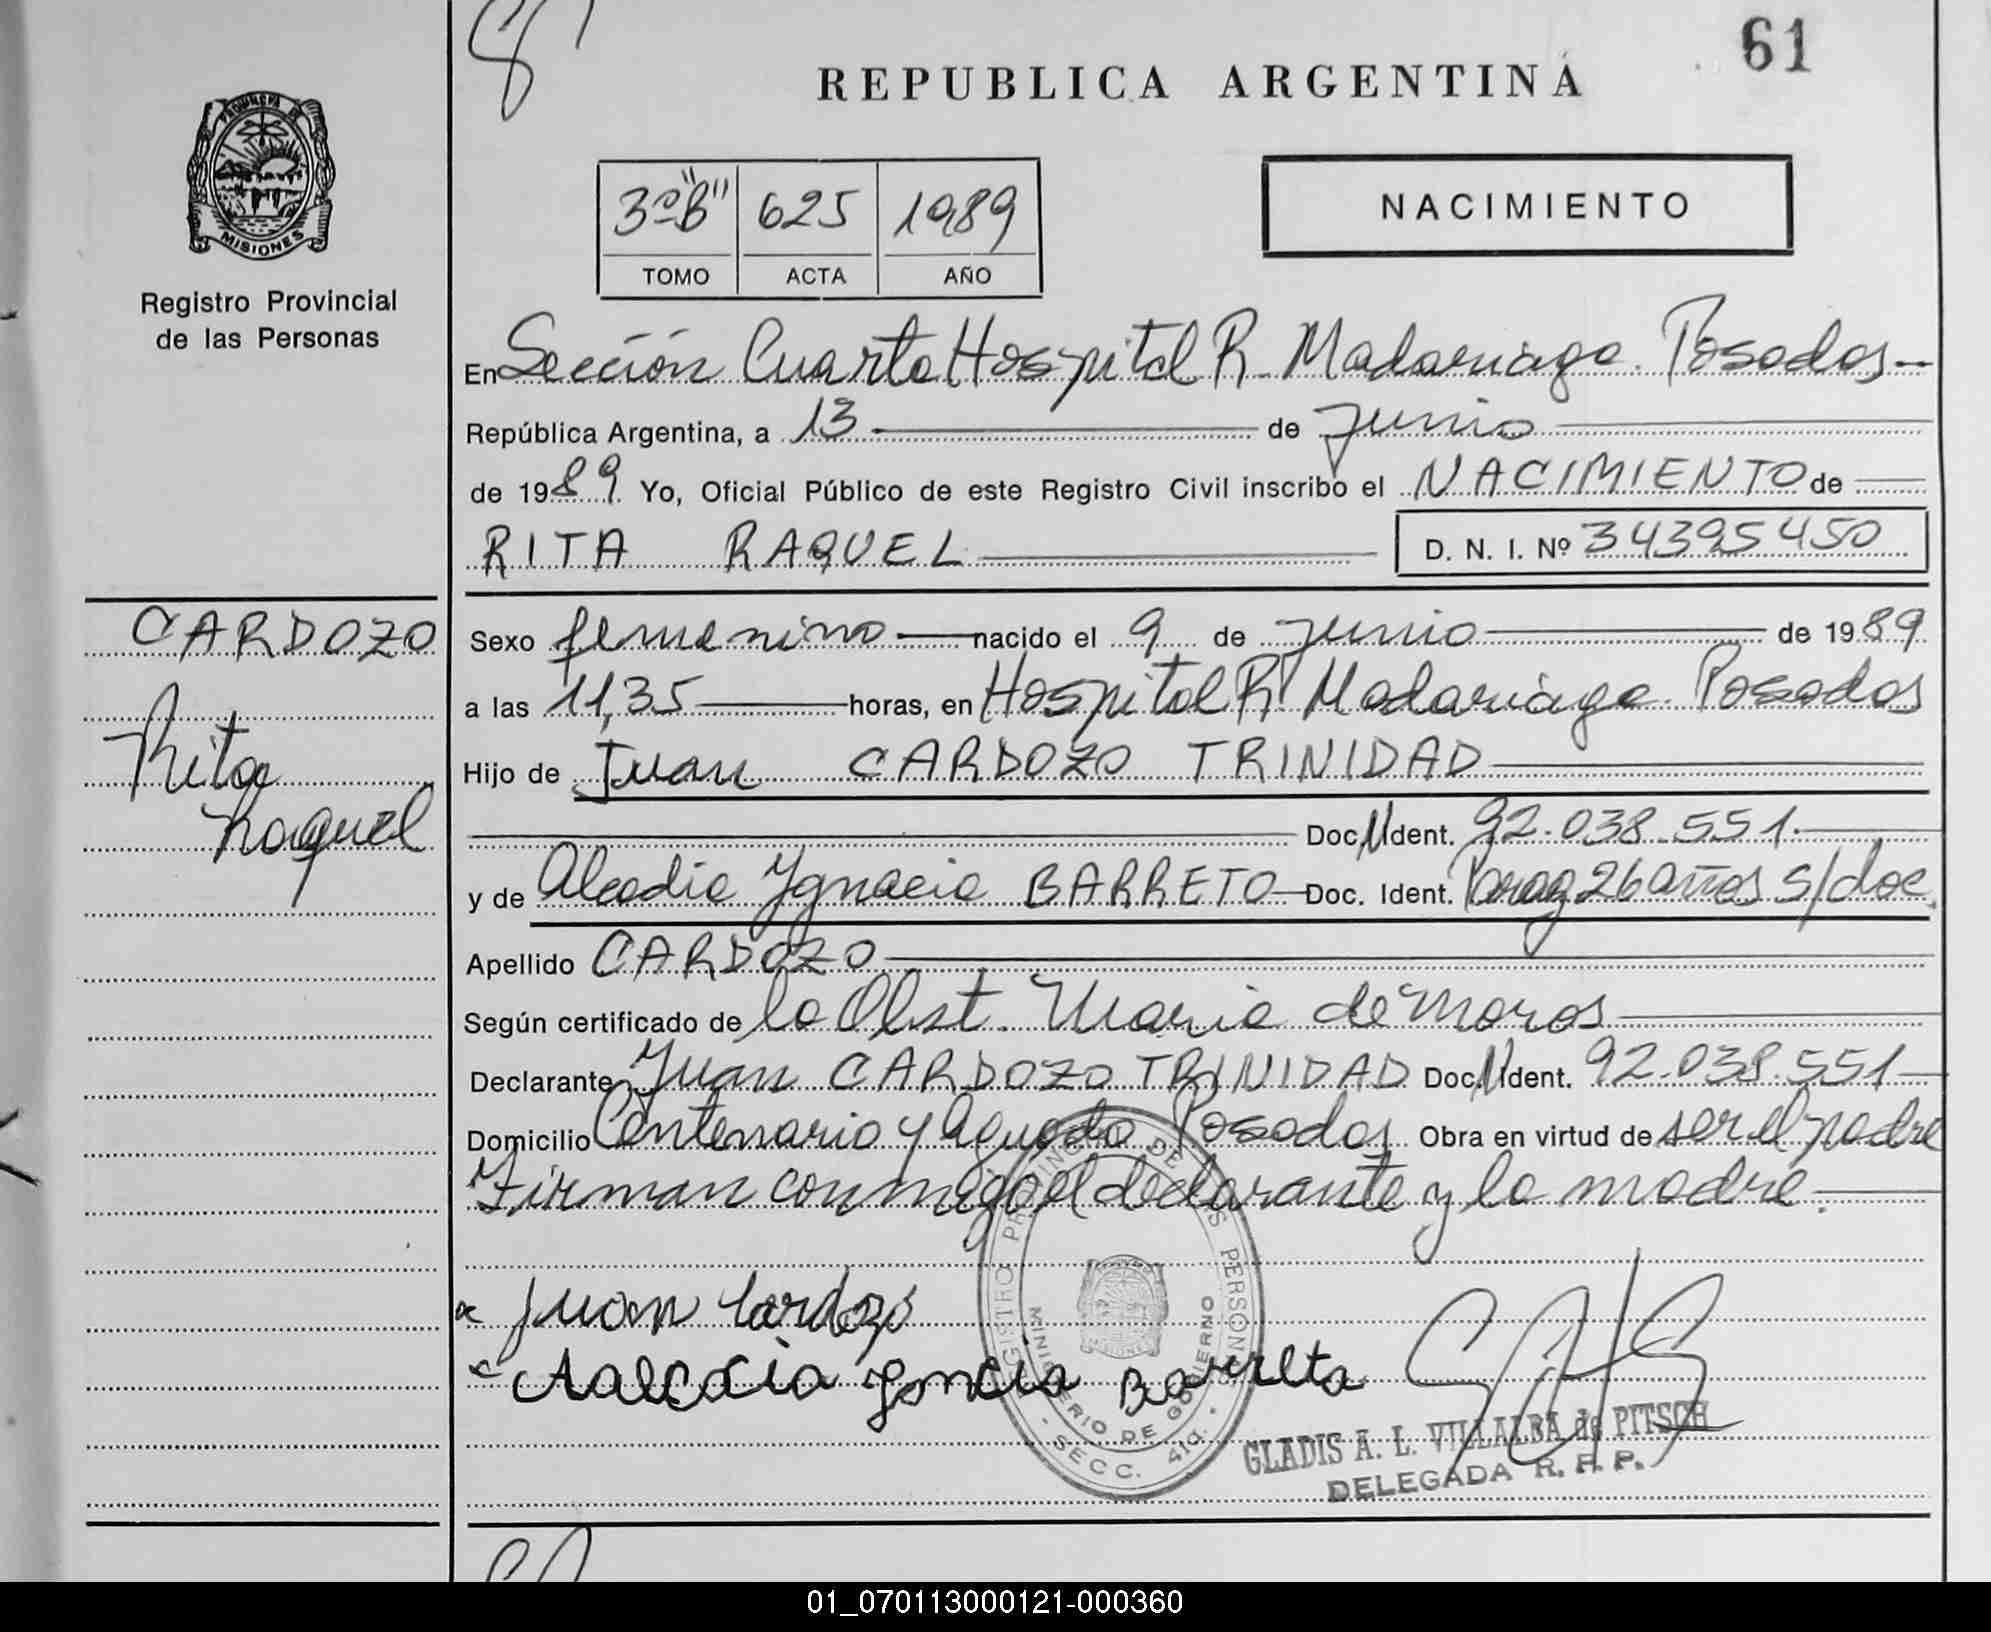 61
REPUBLICA ARGENTINA
PROVINCIA DE
MISIONES
Registro Provincial
de las Personas
3º "B" 625 1989
TOMO ACTA AÑO
NACIMIENTO
En Sección Cuarta Hospital R. Madariaga. Posadas
República Argentina, a 13 de Junio
de 1989 Yo, Oficial Público de este Registro Civil inscribo el NACIMIENTO de
RITA RAQUEL D. N. I. Nº 34395450
CARDOZO
Rita
Raquel
Sexo femenino nacido el 9 de Junio de 1989
a las 11,35 horas, en Hospital R. Madariaga. Posadas
Hijo de Juan CARDOZO TRINIDAD
Doc. N Ident. 92.038.551.
y de Alcadia Ygnacia BARRETO Doc. Ident. Parag 26 años s/doc.
Apellido CARDOZO
Según certificado de la Obst. Maria de Moros
Declarante Juan CARDOZO TRINIDAD Doc. N Ident. 92.038.551
Domicilio Centenario y Aguado Posadas Obra en virtud de ser el padre
Firman conmigo el declarante y la madre.
Juan Cardozo
Aalcadia Ygnacia Barreta
REGISTRO PROVINCIAL DE LAS PERSONAS
MINISTERIO DE GOBIERNO
SECC. 4ta.
MISIONES
GLADIS A. L. VILLALBA de PITSCH
DELEGADA R. P. P.
01_070113000121-000360